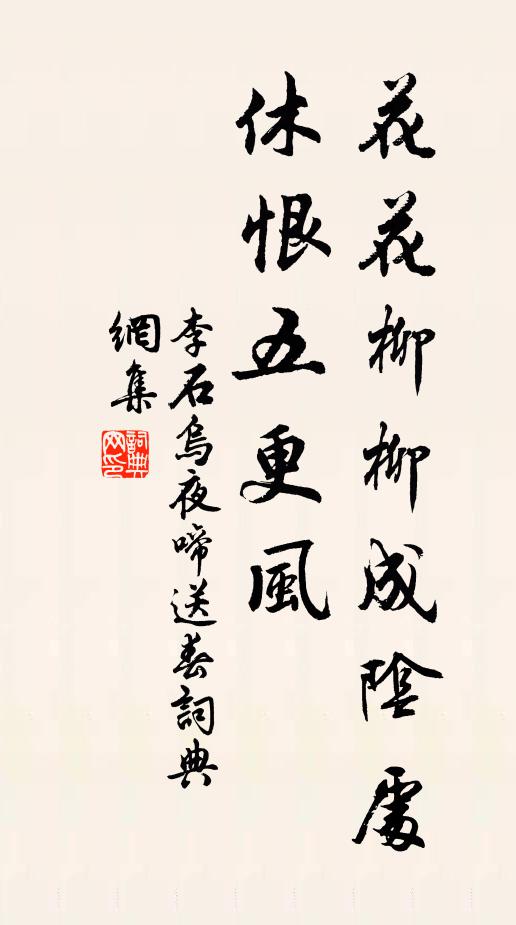 花花柳柳成陰處
休恨五更風
李石烏夜啼送春詞典
網集
詞典網印